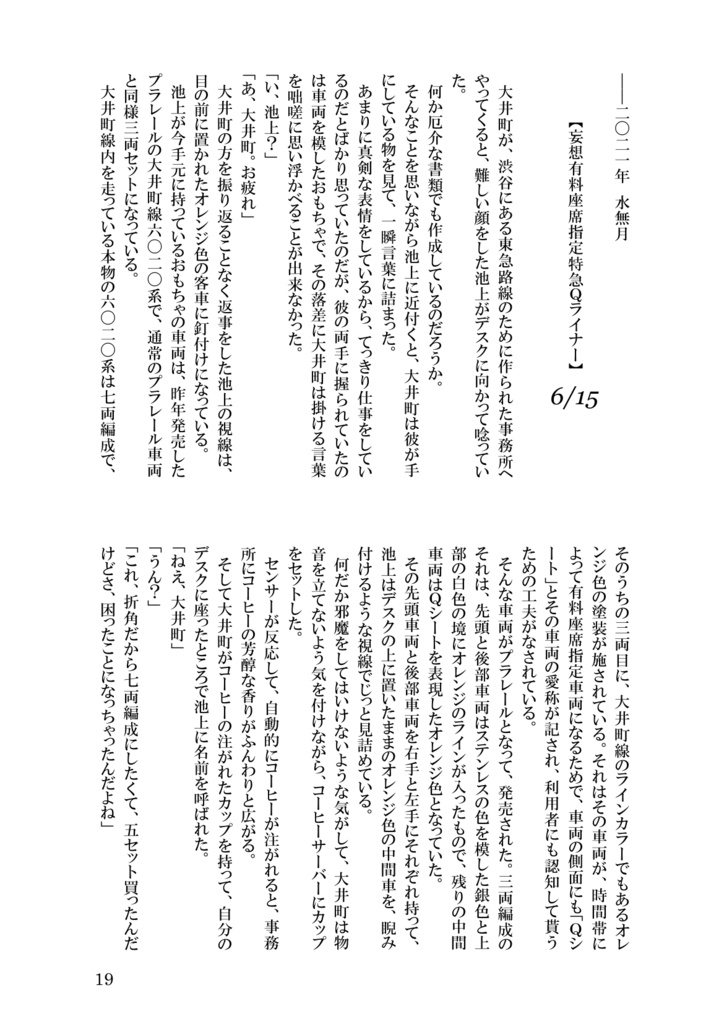 ――二〇二一年 水無月
【妄想有料座席指定特急Qライナー】 6/15
大井町が、渋谷にある東急路線のために作られた事務所へ
やってくると、難しい顔をした池上がデスクに向かって唸ってい
た。
何か厄介な書類でも作成しているのだろうか。
そんなことを思いながら池上に近付くと、大井町は彼が手
にしている物を見て、一瞬言葉に詰まった。
あまりに真剣な表情をしているから、てっきり仕事をしてい
るのだとばかり思っていたのだが、彼の両手に握られていたの
は車両を模したおもちゃで、その落差に大井町は掛ける言葉
を咄嗟に思い浮かべることが出来なかった。
「い、池上？」
「あ、大井町。お疲れ」
大井町の方を振り返ることなく返事をした池上の視線は、
目の前に置かれたオレンジ色の客車に釘付けになっている。
池上が今手元に持っているおもちゃの車両は、昨年発売した
プラレールの大井町線六〇二〇系で、通常のプラレール車両
と同様三両セットになっている。
大井町線内を走っている本物の六〇二〇系は七両編成で、
そのうちの三両目に、大井町線のラインカラーでもあるオレ
ンジ色の塗装が施されている。それはその車両が、時間帯に
よって有料座席指定車両になるためで、車両の側面にも「Qシ
ート」とその車両の愛称が記され、利用者にも認知して貰う
ための工夫がなされている。
そんな車両がプラレールとなって、発売された。三両編成の
それは、先頭と後部車両はステンレスの色を模した銀色と上
部の白色の境にオレンジのラインが入ったもので、残りの中間
車両はQシートを表現したオレンジ色となっていた。
その先頭車両と後部車両を右手と左手にそれぞれ持って、
池上はデスクの上に置いたままのオレンジ色の中間車を、睨み
付けるような視線でじっと見詰めている。
何だか邪魔をしてはいけないような気がして、大井町は物
音を立てないよう気を付けながら、コーヒーサーバーにカップ
をセットした。
センサーが反応して、自動的にコーヒーが注がれると、事務
所にコーヒーの芳醇な香りがふんわりと広がる。
そして大井町がコーヒーの注がれたカップを持って、自分の
デスクに座ったところで池上に名前を呼ばれた。
「ねえ、大井町」
「うん？」
「これ、折角だから七両編成にしたくて、五セット買ったんだ
けどさ、困ったことになっちゃったんだよね」
19